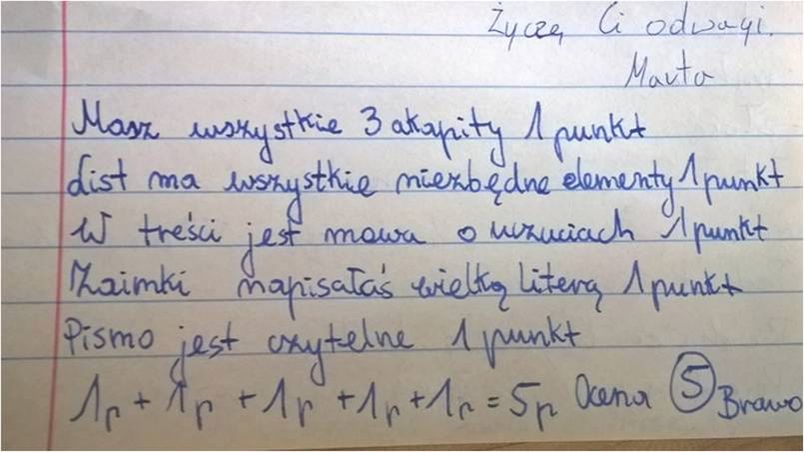 Życzę Ci odwagi.
Marta
Masz wszystkie 3 akapity 1 punkt
List ma wszystkie niezbędne elementy 1 punkt
W treści jest mowa o uczuciach 1 punkt
Zaimki napisałaś wielką literą 1 punkt
Pismo jest czytelne 1 punkt
1p + 1p + 1p + 1p + 1p = 5p Ocena 5 Brawo